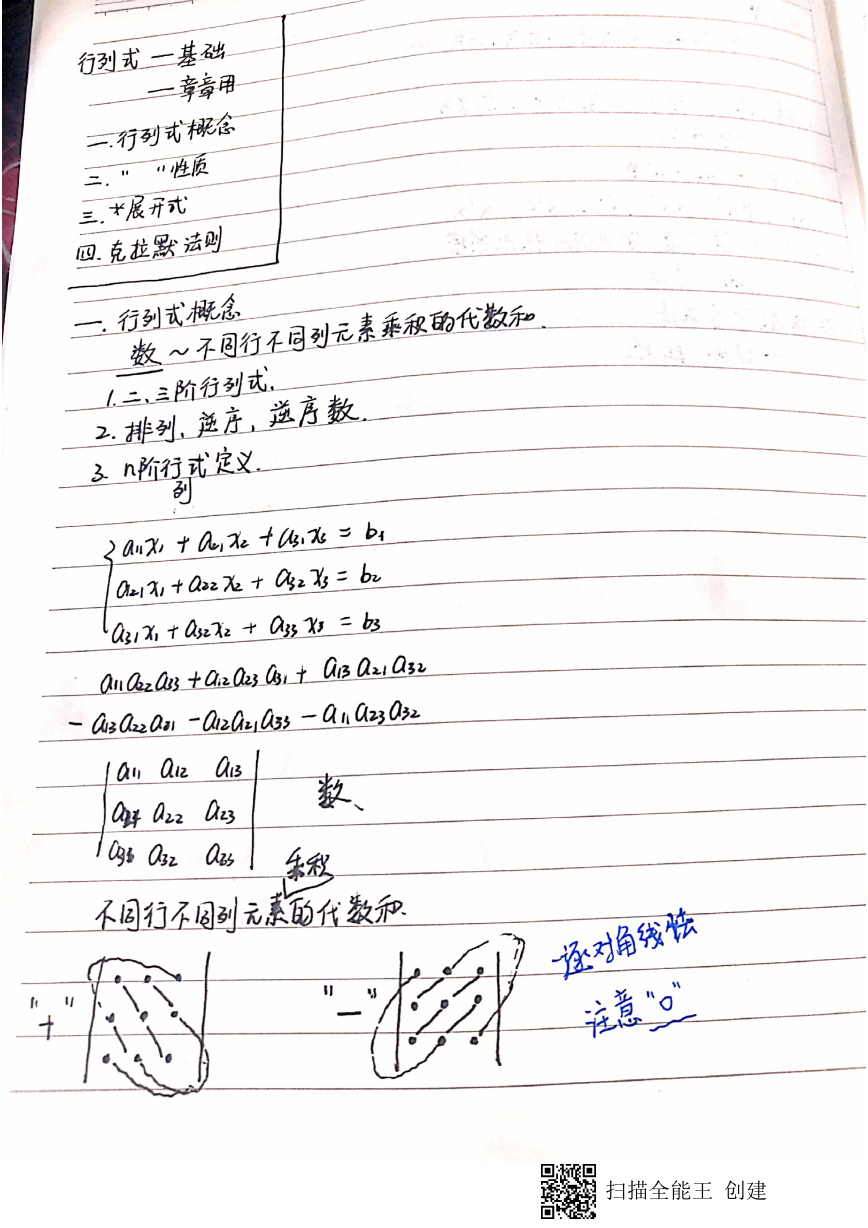 行列式 — 基础
— 章章用
一. 行列式概念
二. " " 性质
三. *展开式
四. 克拉默法则
一. 行列式概念
数 ~ 不同行不同列元素乘积的代数和.
1. 二、三阶行列式.
2. 排列, 逆序, 逆序数.
3. n阶行式定义.
列
a11x1 + a21x2 + a31x3 = b1
a21x1 + a22x2 + a32x3 = b2
a31x1 + a32x2 + a33x3 = b3
a11a22a33 + a12a23a31 + a13a21a32
- a13a22a31 - a12a21a33 - a11a23a32
a11 a12 a13
数、
a21 a22 a23
a31 a32 a33
乘积
不同行不同列元素的代数和.
"+" "—"
逐对角线法
注意"0"
扫描全能王 创建